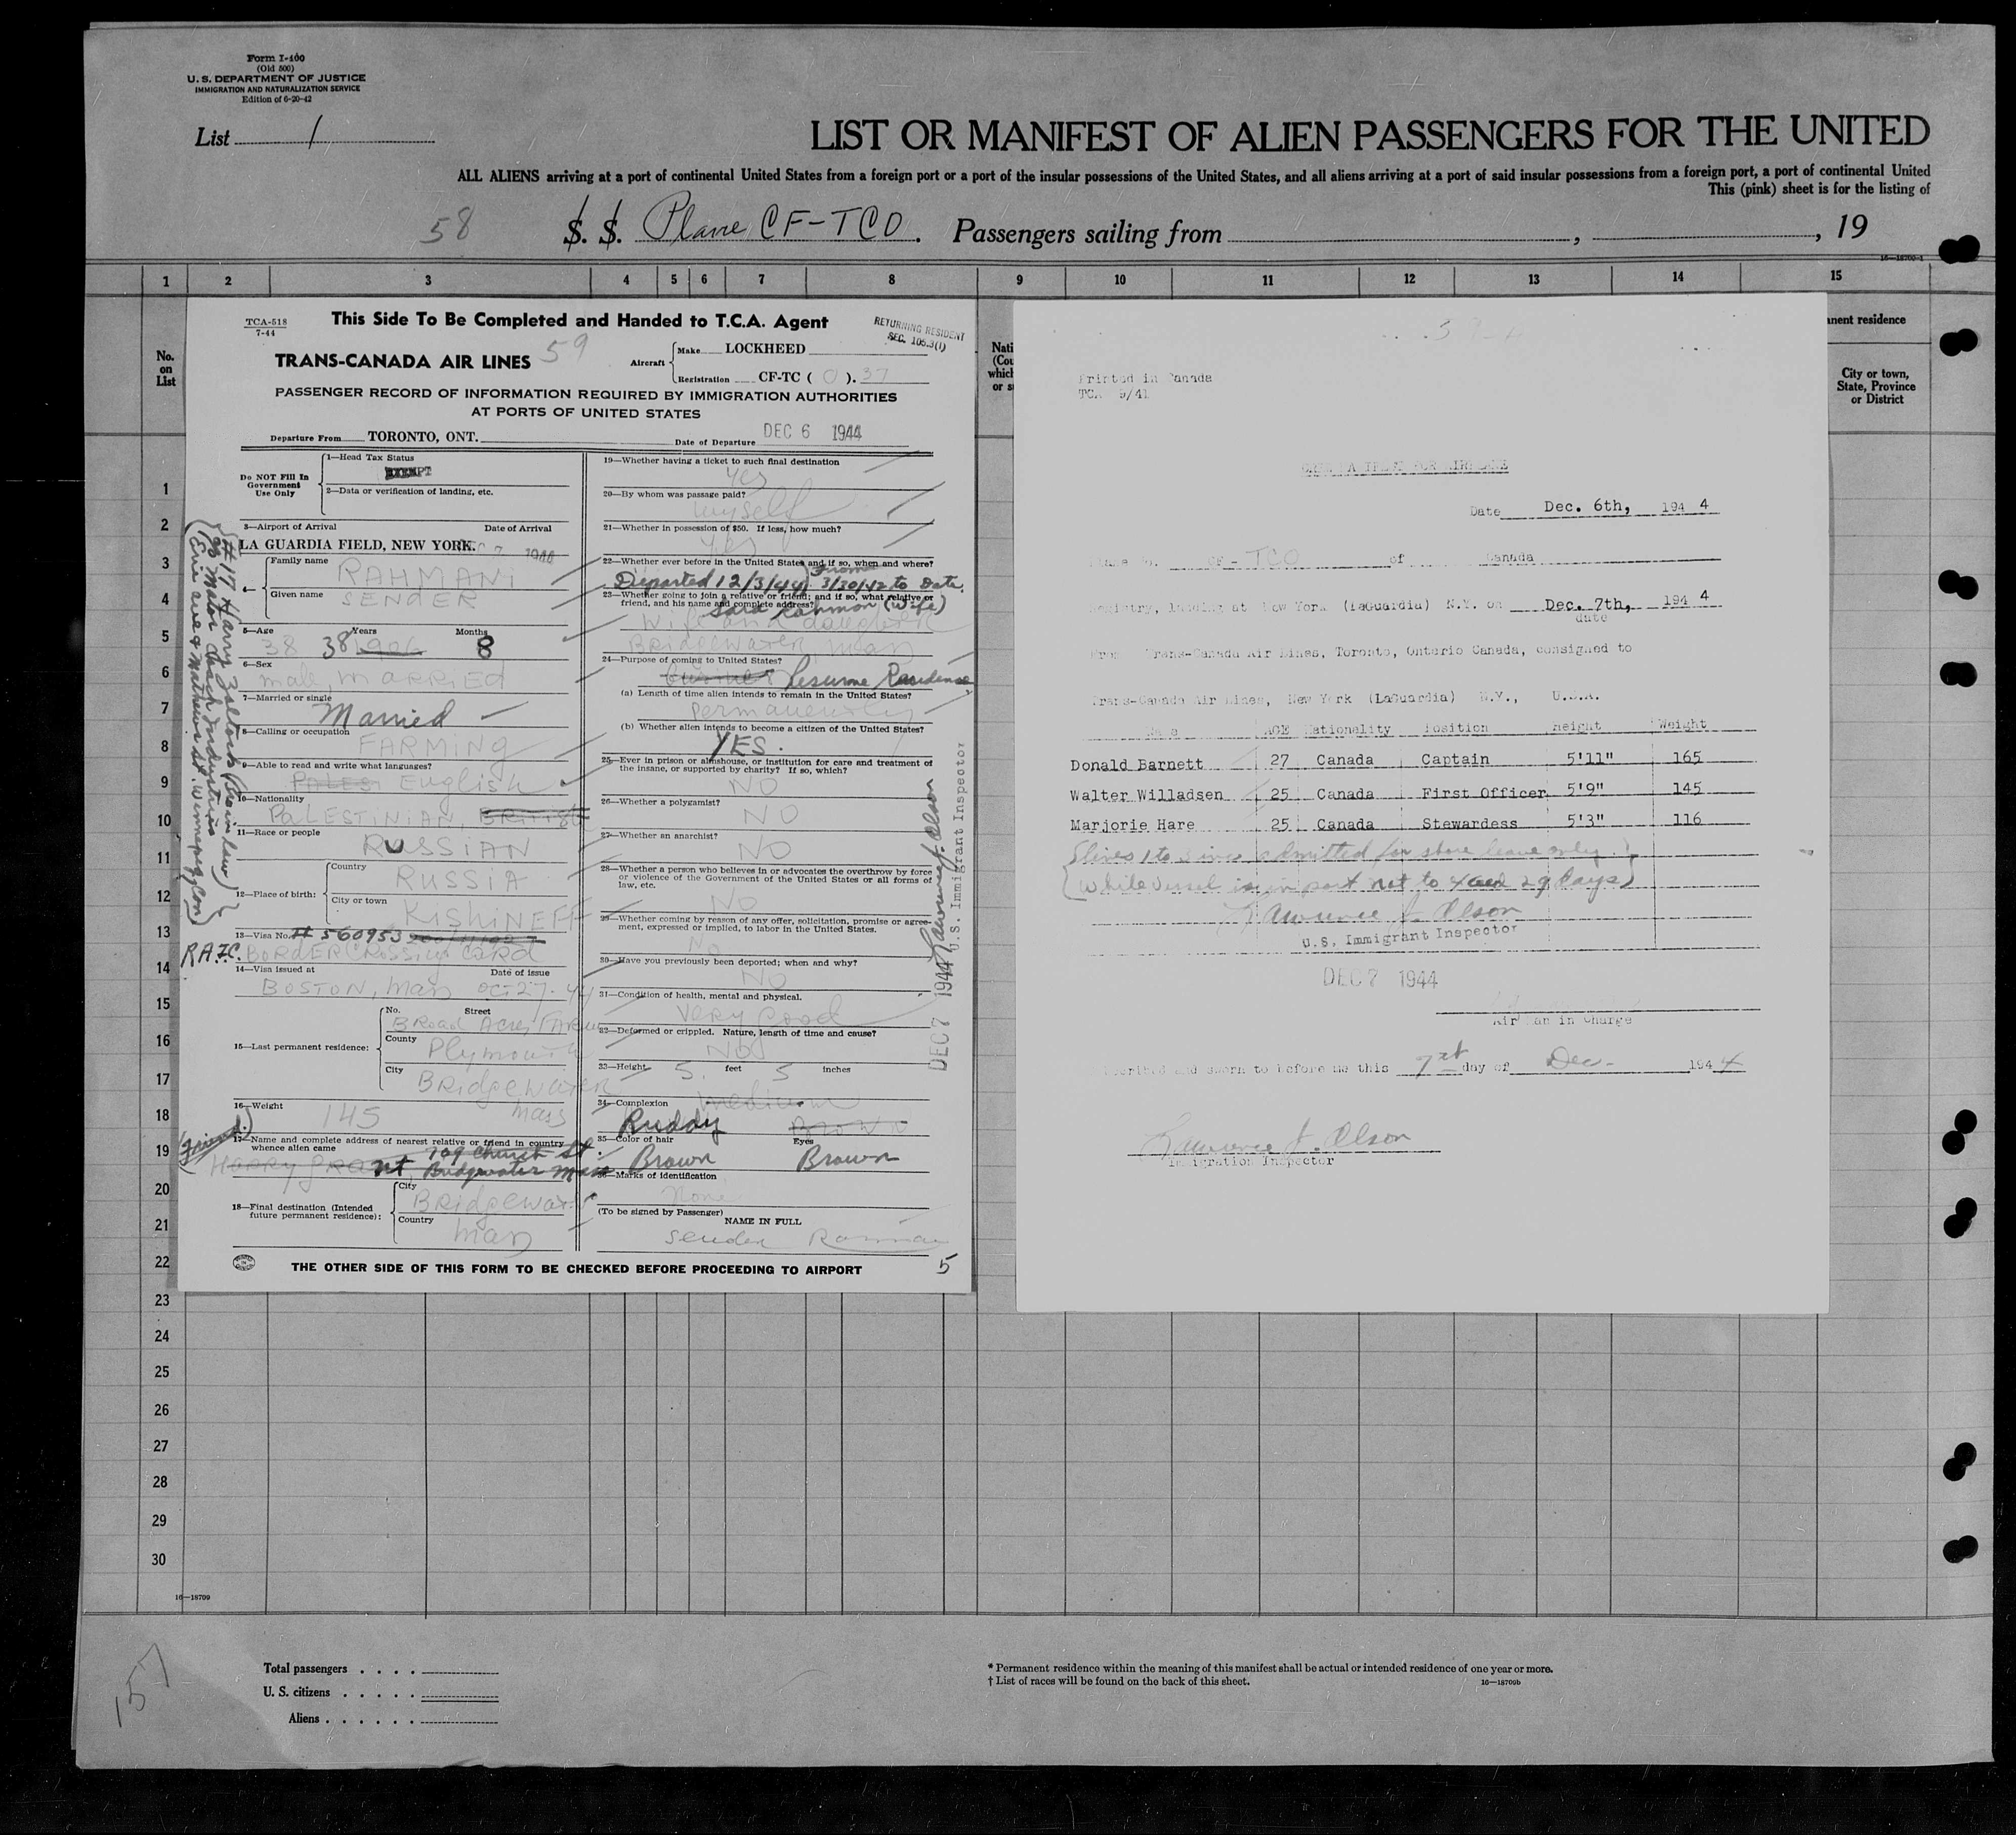 Form I-400
(Old 500)
U. S. DEPARTMENT OF JUSTICE
IMMIGRATION AND NATURALIZATION SERVICE
Edition of 6-20-42
List 1
LIST OR MANIFEST OF ALIEN PASSENGERS FOR THE UNITED
ALL ALIENS arriving at a port of continental United States from a foreign port or a port of the insular possessions of the United States, and all aliens arriving at a port of said insular possessions from a foreign port, a port of continental United
This (pink) sheet is for the listing of
58 S. S. Plane CF-TCO. Passengers sailing from , , 19
1 2 3 4 5 6 7 8 9 10 11 12 13 14 15
No. on List
nent residence
City or town, State, Province or District
1
2
3
4
5
6
7
8
9
10
11
12
13
14
15
16
17
18
19
20
21
22
23
24
25
26
27
28
29
30
TCA-518
7-44
This Side To Be Completed and Handed to T.C.A. Agent
RETURNING RESIDENT
SEC. 105.3(1)
TRANS-CANADA AIR LINES 59
Aircraft
Make LOCKHEED
Registration CF-TC ( O ). 37
PASSENGER RECORD OF INFORMATION REQUIRED BY IMMIGRATION AUTHORITIES
AT PORTS OF UNITED STATES
Departure From TORONTO, ONT. Date of Departure DEC 6 1944
Do NOT Fill In Government Use Only
1—Head Tax Status
EXEMPT
2—Data or verification of landing, etc.
3—Airport of Arrival Date of Arrival
LA GUARDIA FIELD, NEW YORK. DEC 7 1944
4— Family name
RAHMANI
Given name
SENDER
5—Age Years Months
38 38 1906 8
6—Sex
male, MARRIED
7—Married or single
Married
8—Calling or occupation
FARMING
9—Able to read and write what languages?
English
10—Nationality
PALESTINIAN, BRITISH
11—Race or people
RUSSIAN
12—Place of birth:
Country
RUSSIA
City or town
KISHINEFF
13—Visa No. # 560953
BORDER CROSSING CARD
14—Visa issued at Date of issue
BOSTON, Mass OCT 27-44
15—Last permanent residence:
No. Street
Broad Acres FARM
County
Plymouth
City
BRIDGEWATER
Mass
16—Weight
145
(friend)
17—Name and complete address of nearest relative or friend in country whence alien came
709 Church St.
Bridgewater Mass
18—Final destination (Intended future permanent residence):
City
Bridgewater
Country
Mass
19—Whether having a ticket to such final destination
Yes
20—By whom was passage paid?
Myself
21—Whether in possession of $50. If less, how much?
Yes
22—Whether ever before in the United States and if so, when and where?
From
Departed 12/3/44 3/30/42 to Date
23—Whether going to join a relative or friend; and if so, what relative or friend, and his name and complete address?
Sara Rahmon (wife)
Wife and daughter
Bridgewater, Mass
24—Purpose of coming to United States?
Resume Residence
(a) Length of time alien intends to remain in the United States?
Permanently
(b) Whether alien intends to become a citizen of the United States?
YES.
25—Ever in prison or almshouse, or institution for care and treatment of the insane, or supported by charity? If so, which?
NO
26—Whether a polygamist?
NO
27—Whether an anarchist?
NO
28—Whether a person who believes in or advocates the overthrow by force or violence of the Government of the United States or all forms of law, etc.
NO
29—Whether coming by reason of any offer, solicitation, promise or agreement, expressed or implied, to labor in the United States.
No
30—Have you previously been deported; when and why?
NO
31—Condition of health, mental and physical.
Very good
32—Deformed or crippled. Nature, length of time and cause?
NO
33—Height 5. feet 5 inches
34—Complexion medium
Ruddy Brown
35—Color of hair Eyes
Brown Brown
36—Marks of identification
None
(To be signed by Passenger)
NAME IN FULL
THE OTHER SIDE OF THIS FORM TO BE CHECKED BEFORE PROCEEDING TO AIRPORT 5
DEC 7 1944 Lawrence J. Olson
U. S. Immigrant Inspector
Printed in Canada
TCA 9/41
Date Dec. 6th, 194 4
CF-TCO of Canada
Registry, landing at New York (LaGuardia) N.Y. on Dec. 7th, 194 4
date
From Trans-Canada Air Lines, Toronto, Ontario Canada, consigned to
Trans-Canada Air Lines, New York (LaGuardia) N.Y., U.S.A.
Name AGE Nationality Position Height Weight
Donald Barnett 27 Canada Captain 5'11" 165
Walter Willadsen 25 Canada First Officer 5'9" 145
Marjorie Hare 25 Canada Stewardess 5'3" 116
Lines 1 to 3 inc. admitted for shore leave only
(while vessel is in port not to exceed 29 days)
Lawrence J. Olson
U.S. Immigrant Inspector
DEC 7 1944
Airman in Charge
Subscribed and sworn to before me this 7th day of Dec- 194 4
Lawrence J. Olson
Immigration Inspector
16—18709
157
Total passengers
U. S. citizens
Aliens
* Permanent residence within the meaning of this manifest shall be actual or intended residence of one year or more.
† List of races will be found on the back of this sheet.
16—18709b